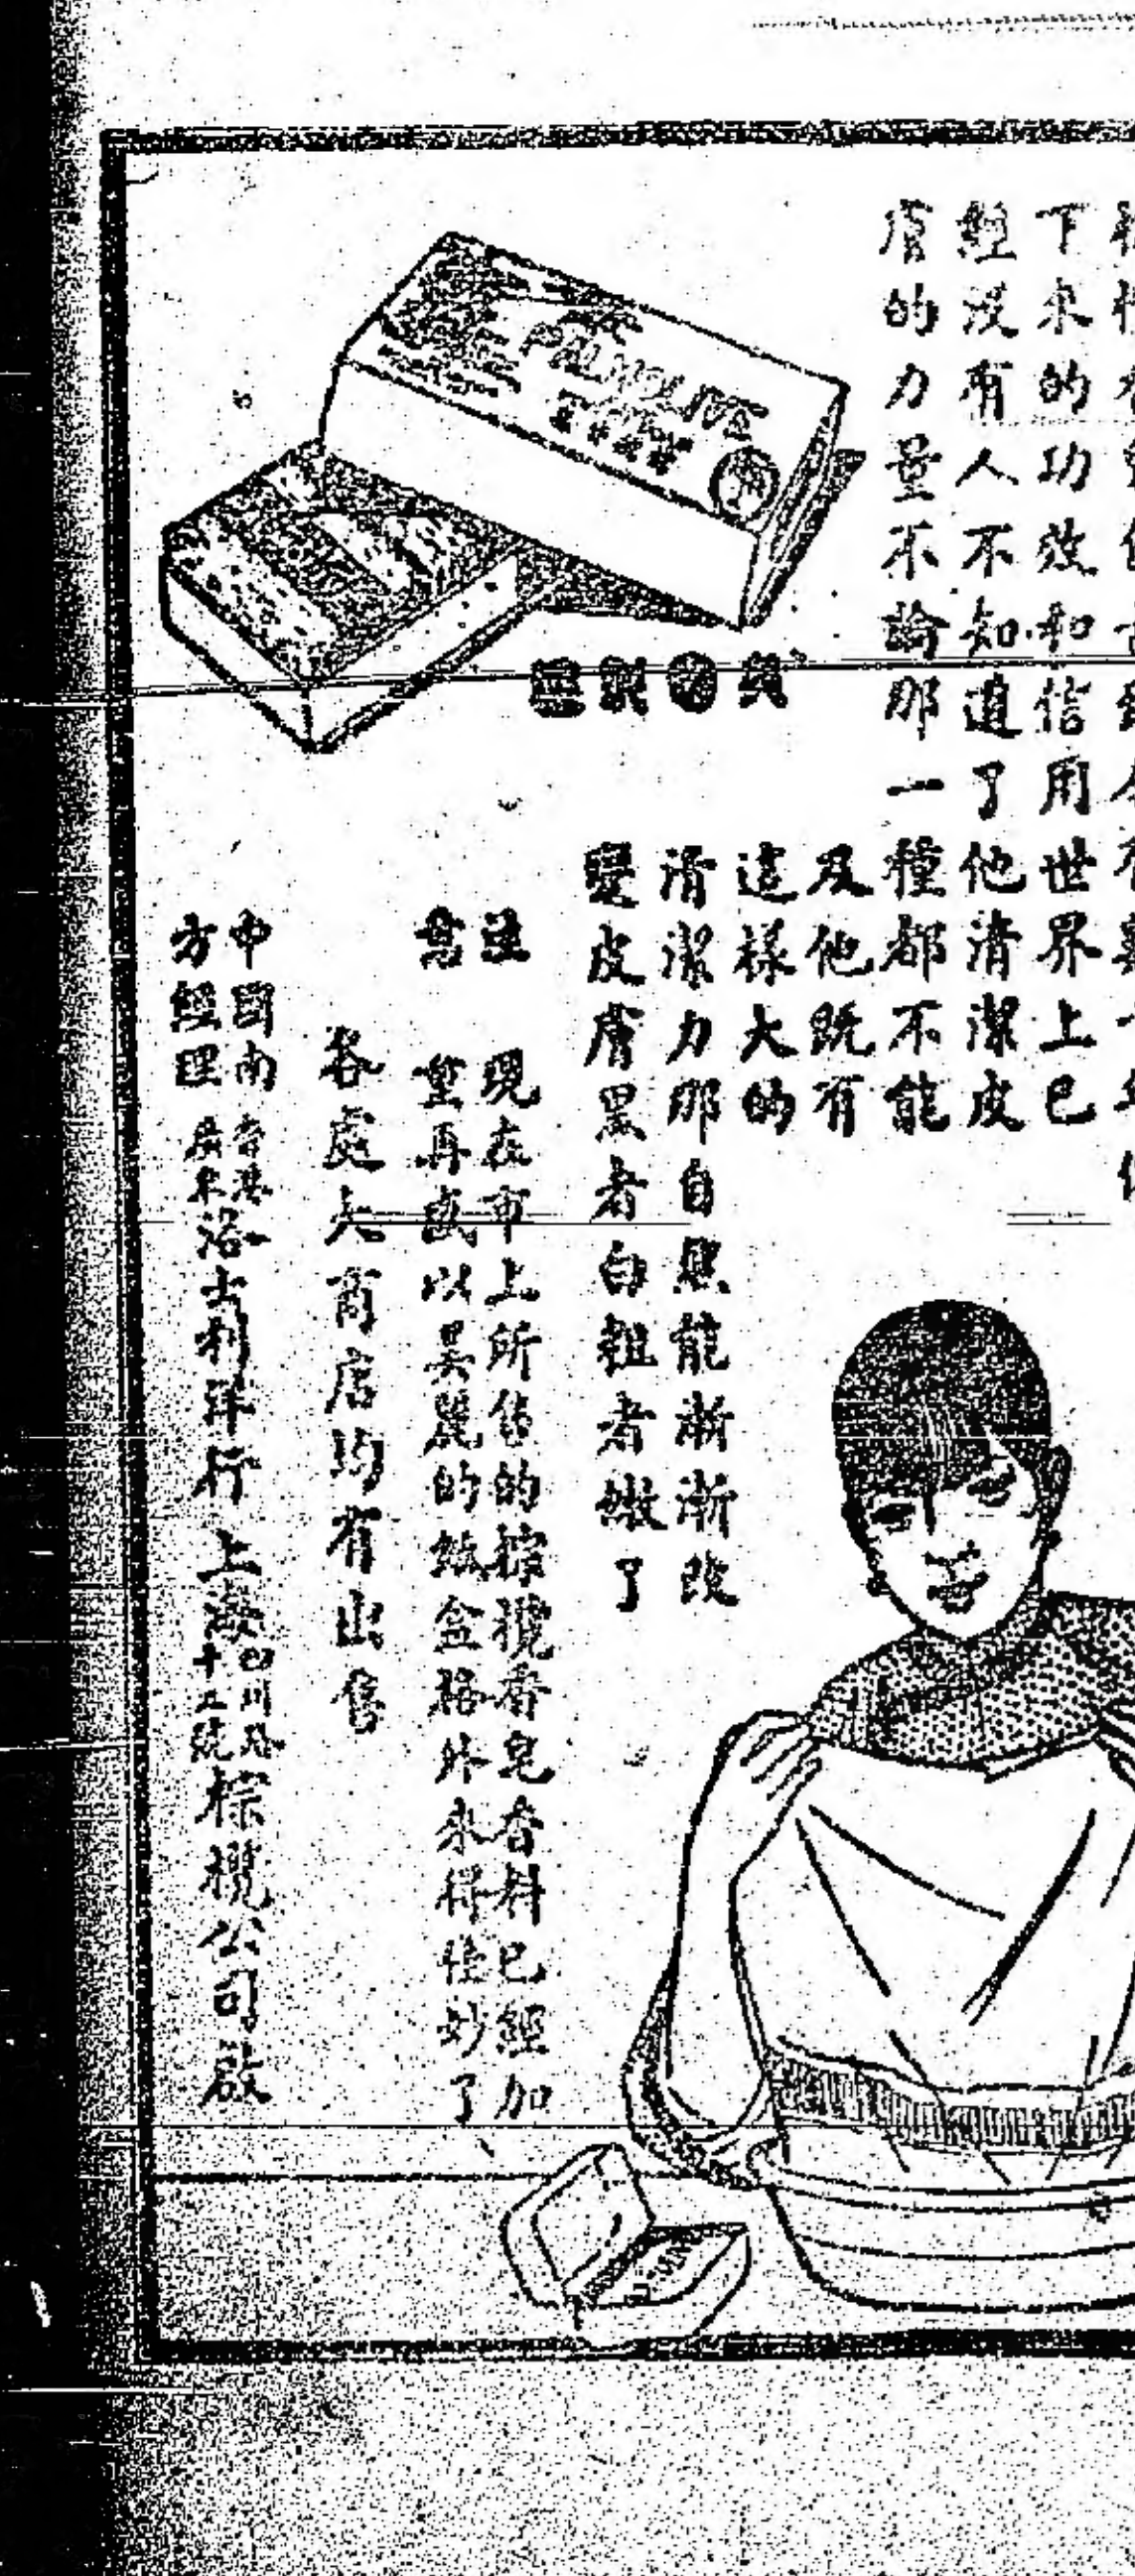 下來的功效和信用世界上已
經沒有人不知道了他清潔皮
膚的力量不論那一種都不能
及他既有
這樣大的
清潔力那自然能漸漸改
變皮膚黑者白粗者嫩了
PALMOLIVE
注意
現在市上所售的棕欖香皂香料已經加
重再盛以美麗的紙盒格外來得佳妙了
各處大商店均有出售
中國南方經理 香港廣東 洛士利洋行 上海四川路十二號 棕欖公司啟